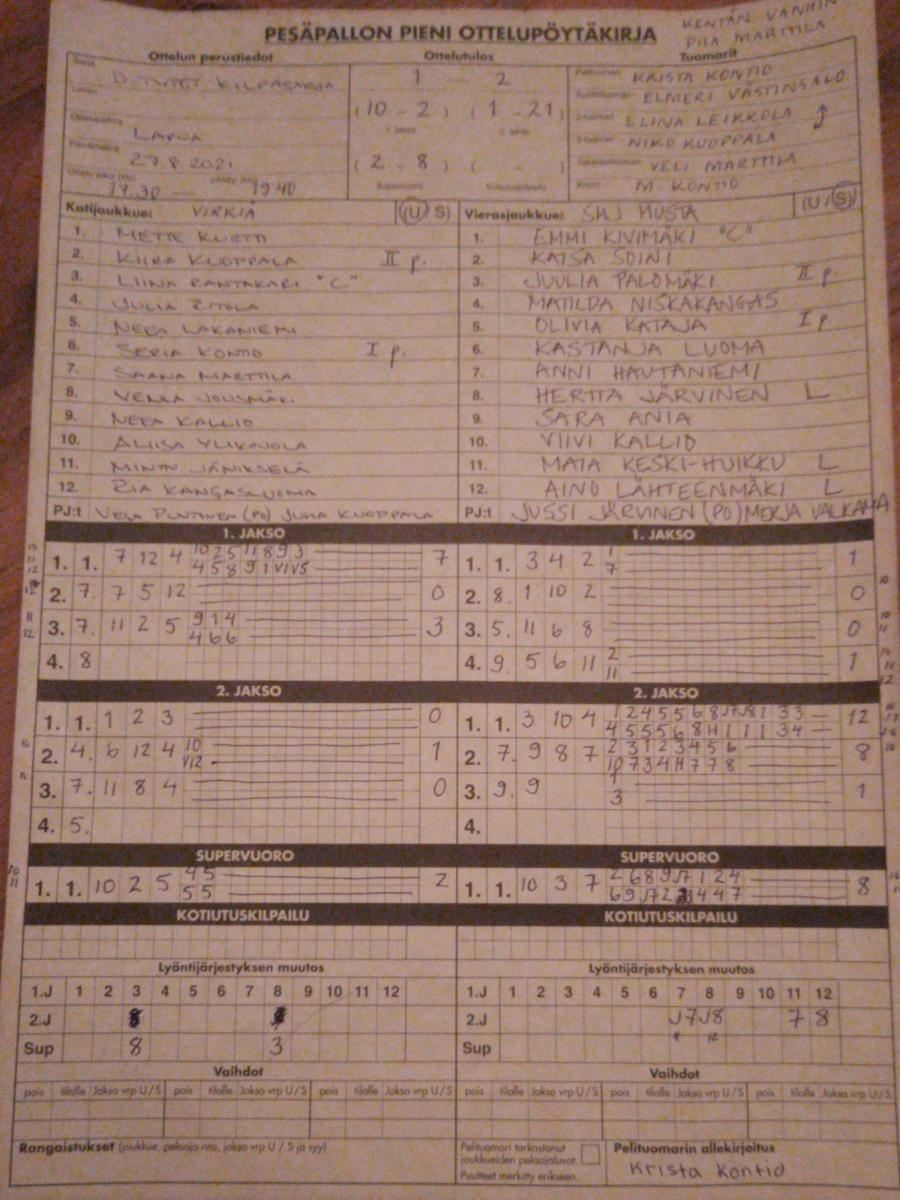 PESÄPALLON PIENI OTTELUPÖYTÄKIRJA
KENTÄN VANHIN
PIIA MARTTILA
Ottelun perustiedot
Ottelutulos
Tuomarit
D-TYTÖT KILPASARJA
LAPUA
27.8.2021
17.30 19 40
1 - 2
(10 - 2) (1 - 21)
(2 - 8) ( - )
Supervuoro
KRISTA KONTIO
ELMERI VÄSTINSALO
ELINA LEIKKOLA
NIKO KUOPPALA
VELI MARTTILA
M. KONTIO
Kotijoukkue: VIRKIÄ (U/S)
1. METTE KURTTI
2. KIIRA KUOPPALA II p.
3. LIINA RANTAKARI "C"
4. JULIA RITOLA
5. NEEA LAKANIEMI
6. SERIA KONTIO I p.
7. SAANA MARTTILA
8. VENLA JOUSMÄKI
9. NEEA KALLIO
10. ALIISA YLIKOJOLA
11. MINTTU JÄNIKSELÄ
12. RIA KANGASLUOMA
PJ:t VESA PUNTINEN (PO) JUHA KUOPPALA
Vierasjoukkue: SMJ MUSTA (U/S)
1. EMMI KIVIMÄKI "C"
2. KAISA SOINI
3. JUULIA PALOMÄKI II p
4. MATILDA NISKAKANGAS
5. OLIVIA KATAJA I p
6. KASTANJA LUOMA
7. ANNI HAUTANIEMI
8. HERTTA JÄRVINEN L
9. SARA ANIA
10. VIIVI KALLIO
11. MAIA KESKI-HUIKKU L
12. AINO LÄHTEENMÄKI L
PJ:t JUSSI JÄRVINEN (PO) MERJA VALKAMA
1. JAKSO
1. 1. 7 12 4 10 2 5 11 8 9 3 7
4 5 8 9 1 V1 V5
2. 7. 7 5 12 0
3. 7. 11 2 5 9 1 4 3
4 6 6
4. 8
1. JAKSO
1. 1. 3 4 2 1 1
7
2. 8. 1 10 2 0
3. 5. 11 6 8 0
4. 9. 5 6 11 2 1
11
2. JAKSO
1. 1. 1 2 3 0
2. 4. 6 12 4 10 1
V12
3. 7. 11 8 4 0
4. 5.
2. JAKSO
1. 1. 3 10 4 1 2 4 5 5 6 8 J7 J8 1 3 3 12
4 5 5 5 6 8 11 1 1 1 3 4
2. 7. 9 8 7 2 3 1 2 3 4 5 6 8
10 7 3 4 11 7 7 8
3. 9. 9 1 1
3
4.
SUPERVUORO
1. 1. 10 2 5 4 5 2
5 5
SUPERVUORO
1. 1. 10 3 7 2 6 8 9 J7 1 2 4 8
6 9 J7 2 3 4 4 7
KOTIUTUSKILPAILU
KOTIUTUSKILPAILU
Lyöntijärjestyksen muutos
1.J 1 2 3 4 5 6 7 8 9 10 11 12
2.J
Sup 8 3
Lyöntijärjestyksen muutos
1.J 1 2 3 4 5 6 7 8 9 10 11 12
2.J J7 J8 7 8
Sup
Vaihdot
pois tilalle Jakso vrp U/S pois tilalle Jakso vrp U/S pois tilalle Jakso vrp U/S
Vaihdot
pois tilalle Jakso vrp U/S pois tilalle Jakso vrp U/S pois tilalle Jakso vrp U/S
Rangaistukset (joukkue, pelaaja nro, jakso vrp U / S ja syy)
Pelituomari tarkastanut
joukkueiden pelaajaluvat.
Puutteet merkitty erikseen.
Pelituomarin allekirjoitus
Krista Kontio